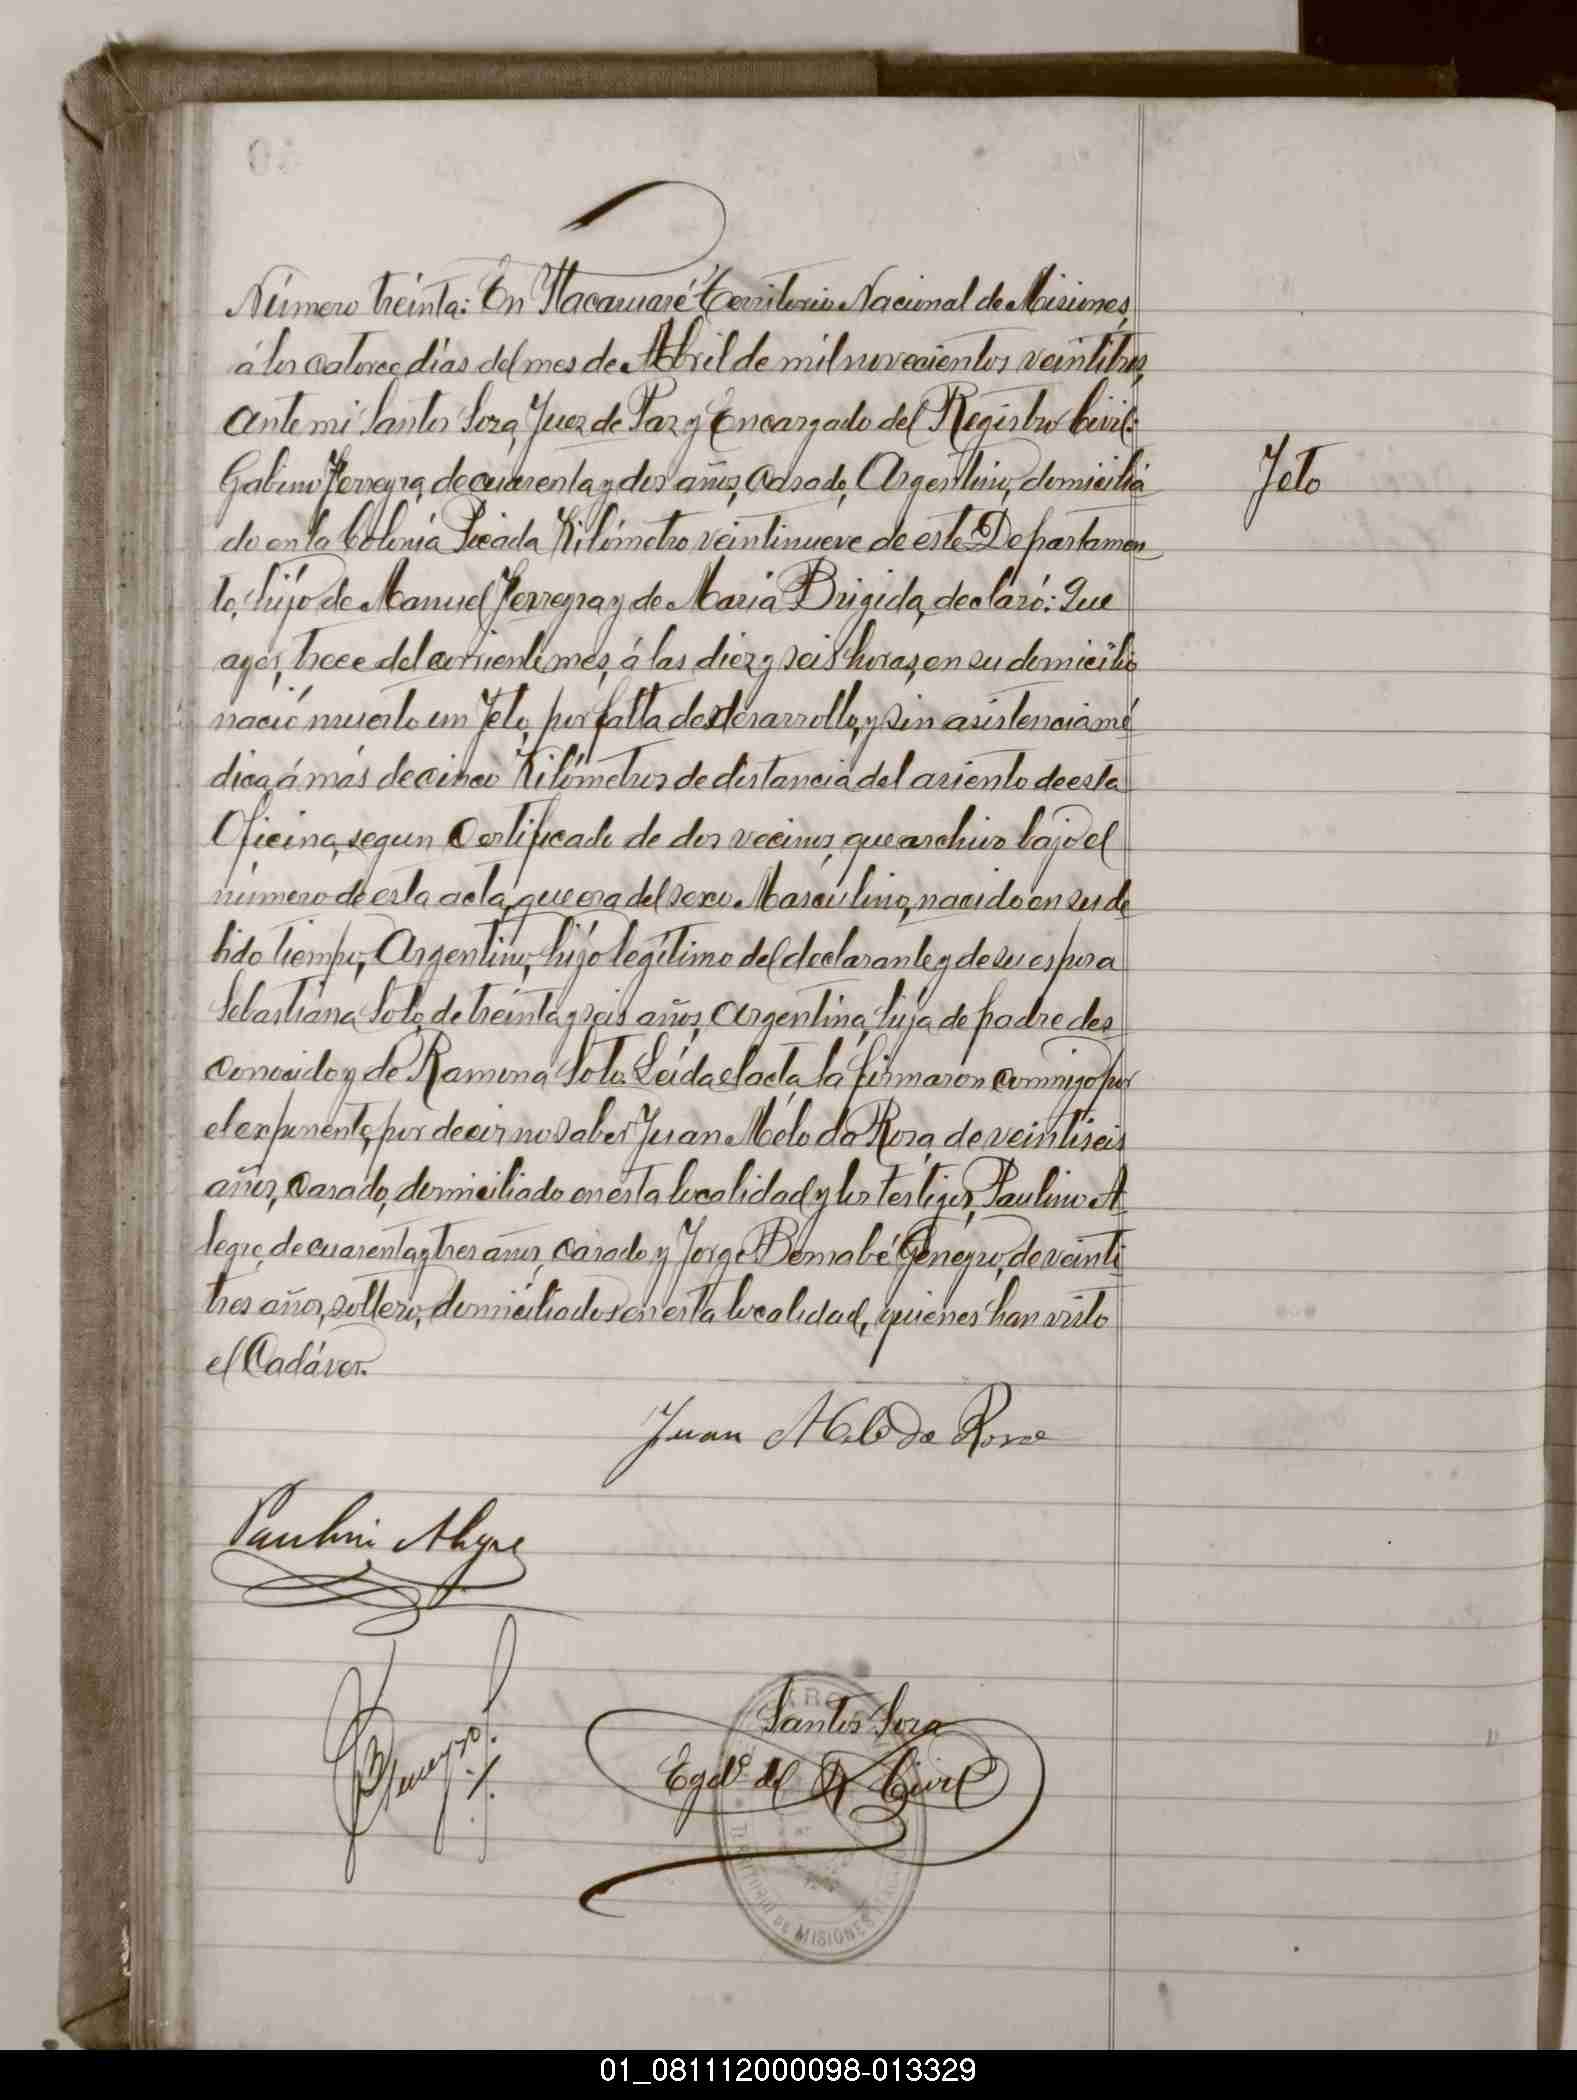 Número treinta: En Itacaruaré Territorio Nacional de Misiones,
á los catorce días del mes de Abril de mil novecientos veintitres,
ante mi Santos Soza, Juez de Paz y Encargado del Registro Civil:
Gabino Ferreyra, de cuarenta y dos años, casado, Argentino, domicilia
do en la Colonia Picada Kilómetro veintinueve de este Departamen
to, hijo de Manuel Ferreyra y de María Brigida, declaró: Que
ayer, trece del corriente mes, á las diez y seis horas, en su domicilio
nació muerto un Feto, por falta de desarrollo, y sin asistencia mé
dica, á más de cinco Kilómetros de distancia del asiento de esta
Oficina, segun Certificado de dos vecinos, que archivo bajo el
número de esta acta, que era del sexo Masculino, nacido en su de
bido tiempo, Argentino, hijo legítimo del declarante y de su esposa
Sebastiana Soto, de treinta y seis años, Argentina, hija de padre des
conocido y de Ramona Soto. Leída el acta la firmaron conmigo por
el exponente, por decir no saber Juan Mélo da Rosa, de veintiseis
años, casado, domiciliado en esta localidad y los testigos, Paulino A
legre, de cuarenta y tres años, casado y Jorge Bernabé Genegro, de veinti
tres años, soltero, domiciliados en esta localidad, quienes han visto
el Cadáver.
Feto
Juan Melo da Rosa
Paulino Alegre
Santos Soza
Egdo. del R. Civil
TERRITORIO DE MISIONES
01_081112000098-013329